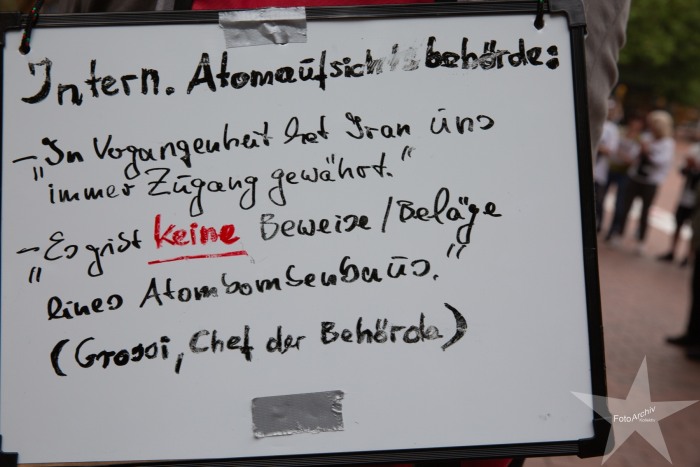 Intern. Atomaufsichtsbehörde:
- "In Vogangenheit hat Iran uns
immer Zugang gewährt."
- "Es gibt keine Beweise/Beläge
eines Atombombenbaus."
(Grossi, Chef der Behörde)
FotoArchiv